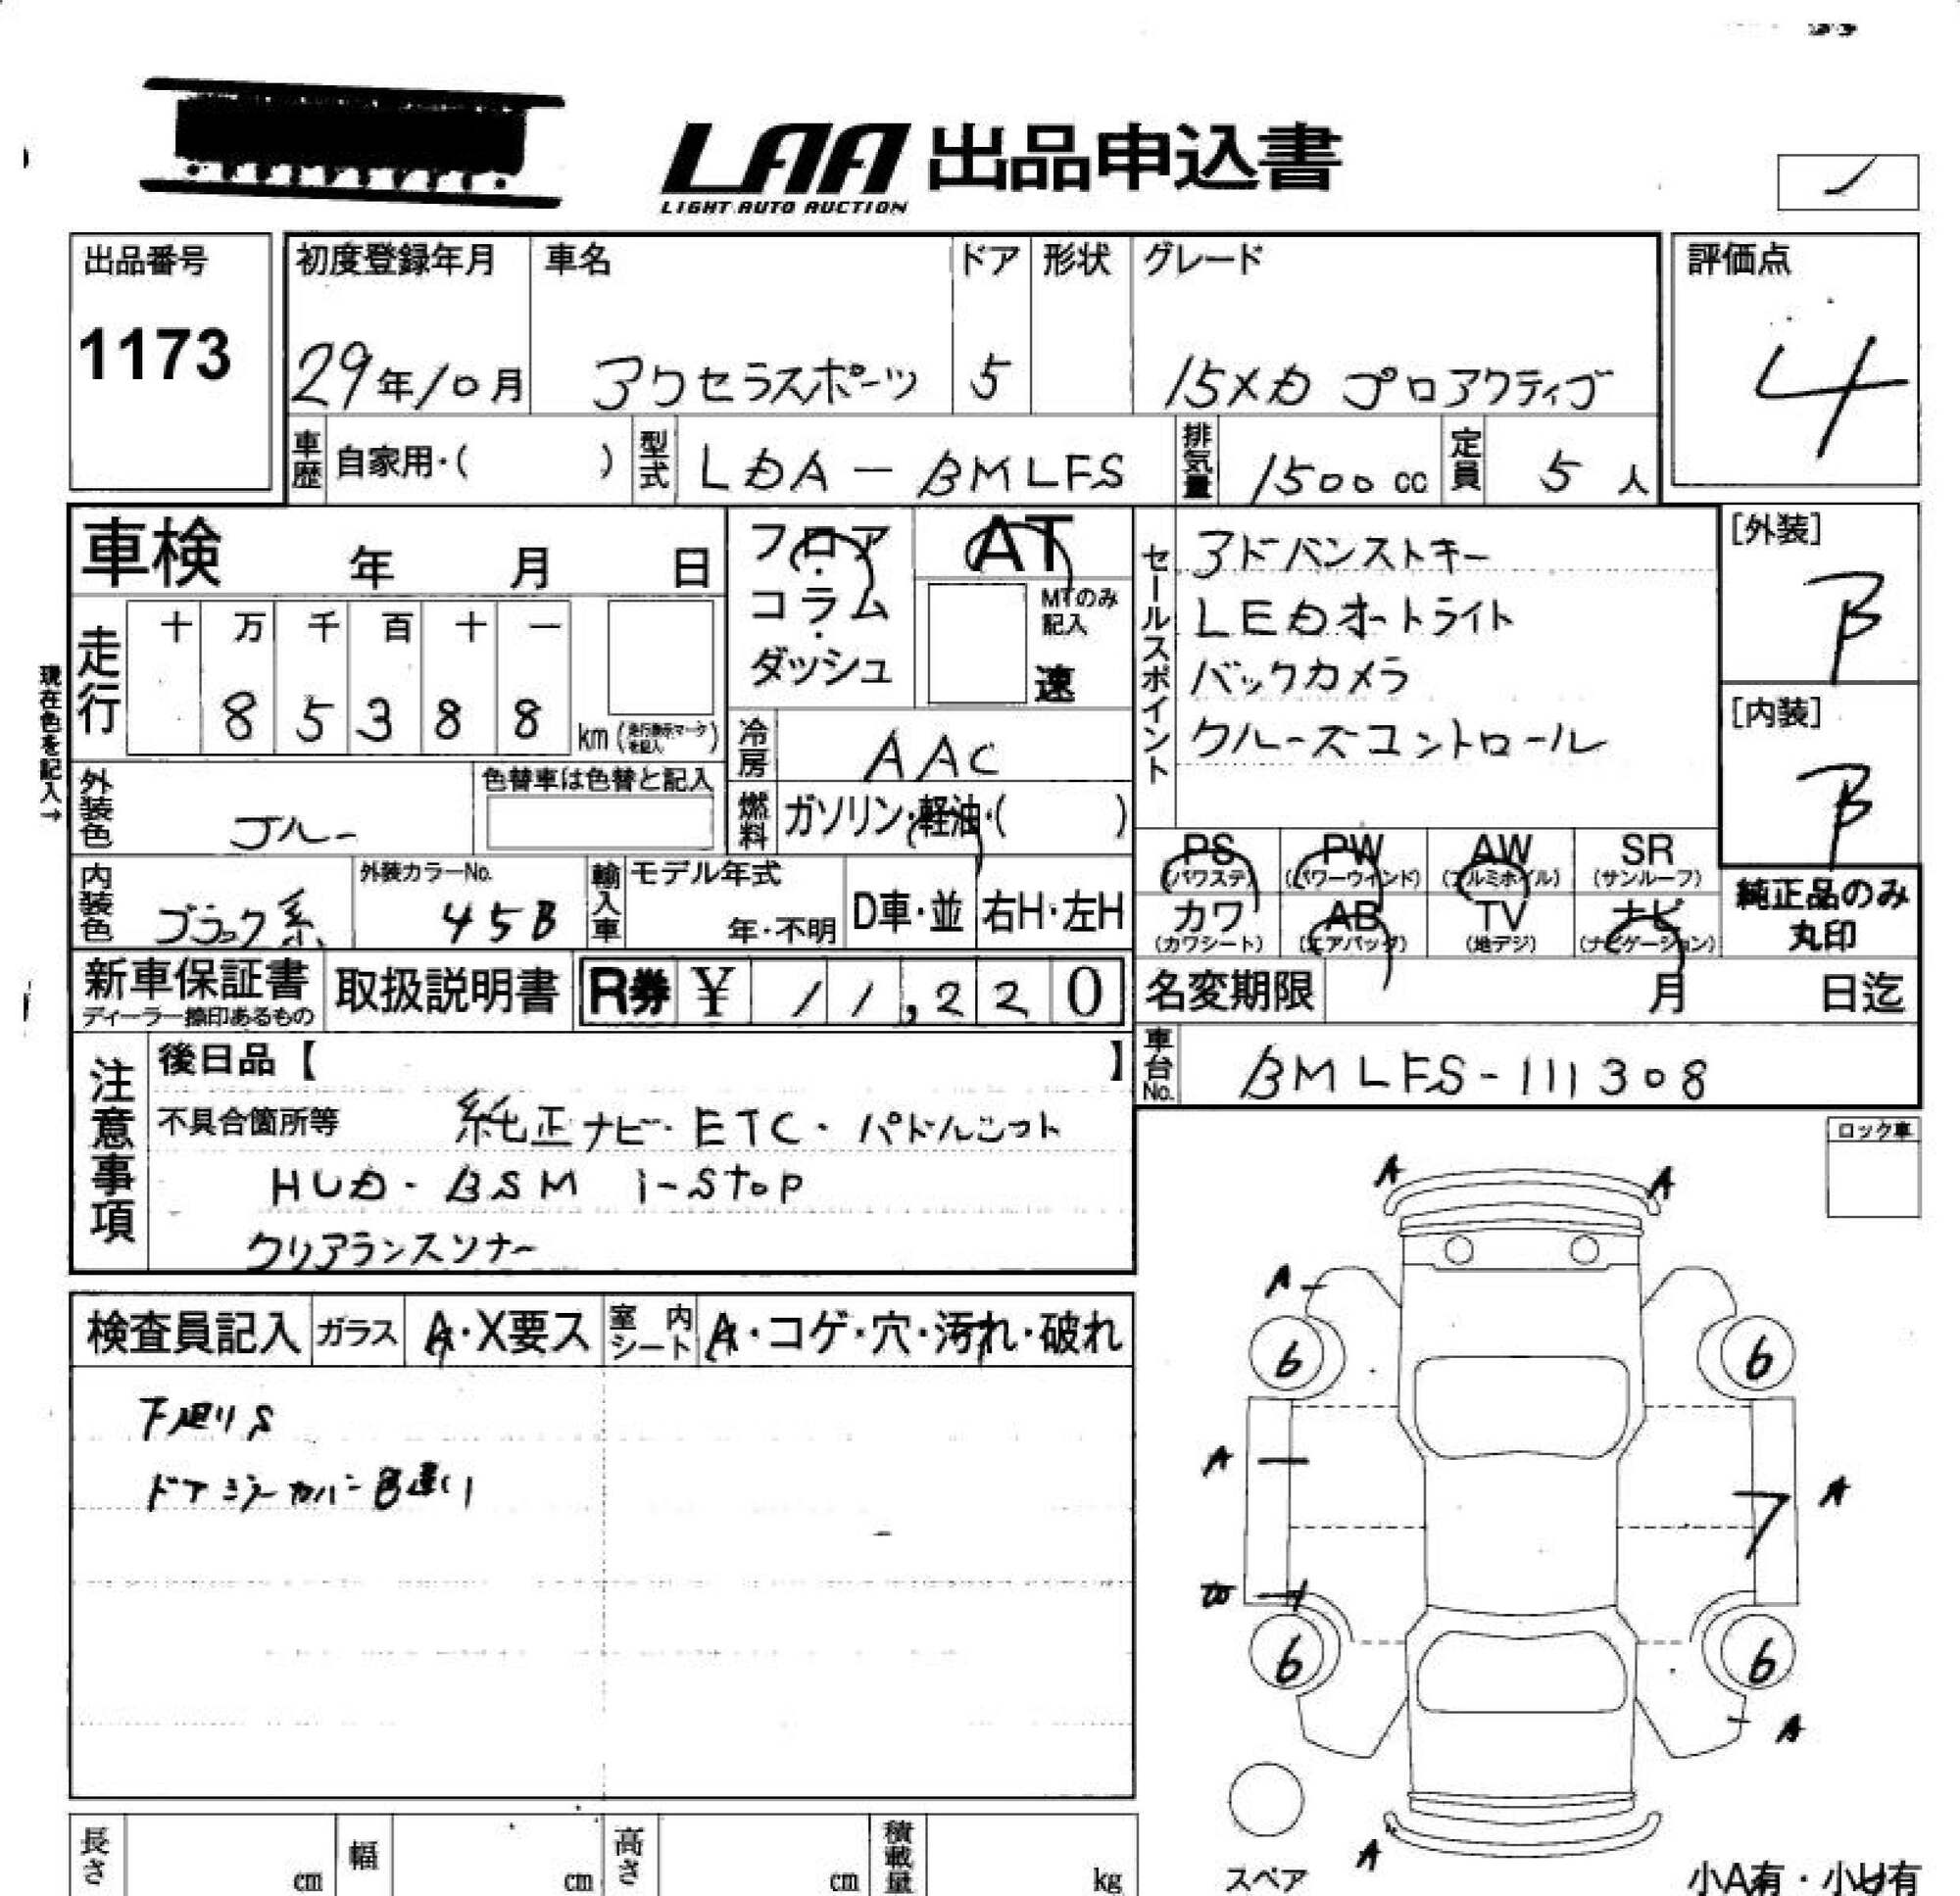 LAA 出品申込書
LIGHT AUTO AUCTION
出品番号 初度登録年月 車名 ドア 形状 グレード 評価点
1173 29年10月 アクセラスポーツ 5 15XD プロアクティブ 4
車歴 自家用・( ) 型式 LDA-BMLFS 排気量 1500cc 定員 5人
車検 年 月 日 フロア・コラム・ダッシュ AT
MTのみ記入 速
セールスポイント アドバンストキー
LEDオートライト
バックカメラ
クルーズコントロール
[外装] B
[内装] B
現在色を記入→
走行 十 万 千 百 十 一
8 5 3 8 8 km
冷房 AAC
外装色 ブルー 色替車は色替と記入
燃料 ガソリン・軽油・( )
PS PW AW SR
(パワステ) (パワーウインド) (アルミホイル) (サンルーフ)
カワ AB TV ナビ
(カワシート) (エアバッグ) (地デジ) (ナビゲーション)
純正品のみ
丸印
内装色 ブラック系 外装カラーNo. 45B 輸入車 モデル年式 年・不明 D車・並 右H・左H
新車保証書 取扱説明書 R券 ¥ 11,220
名変期限 月 日迄
車台No. BMLFS-111308
注意事項 後日品【 】
不具合箇所等 純正ナビ・ETC・パドルシフト
HUD・BSM i-stop
クリアランスソナー
ロック車
検査員記入 ガラス A・X要ス 室内シート A・コゲ・穴・汚れ・破れ
下廻りS
ドアミラーカバー色違い
A A
A
6 6
A A
6 6
A
A
スペア
小A有・小U有
長さ cm 幅 cm 高さ cm 積載量 kg